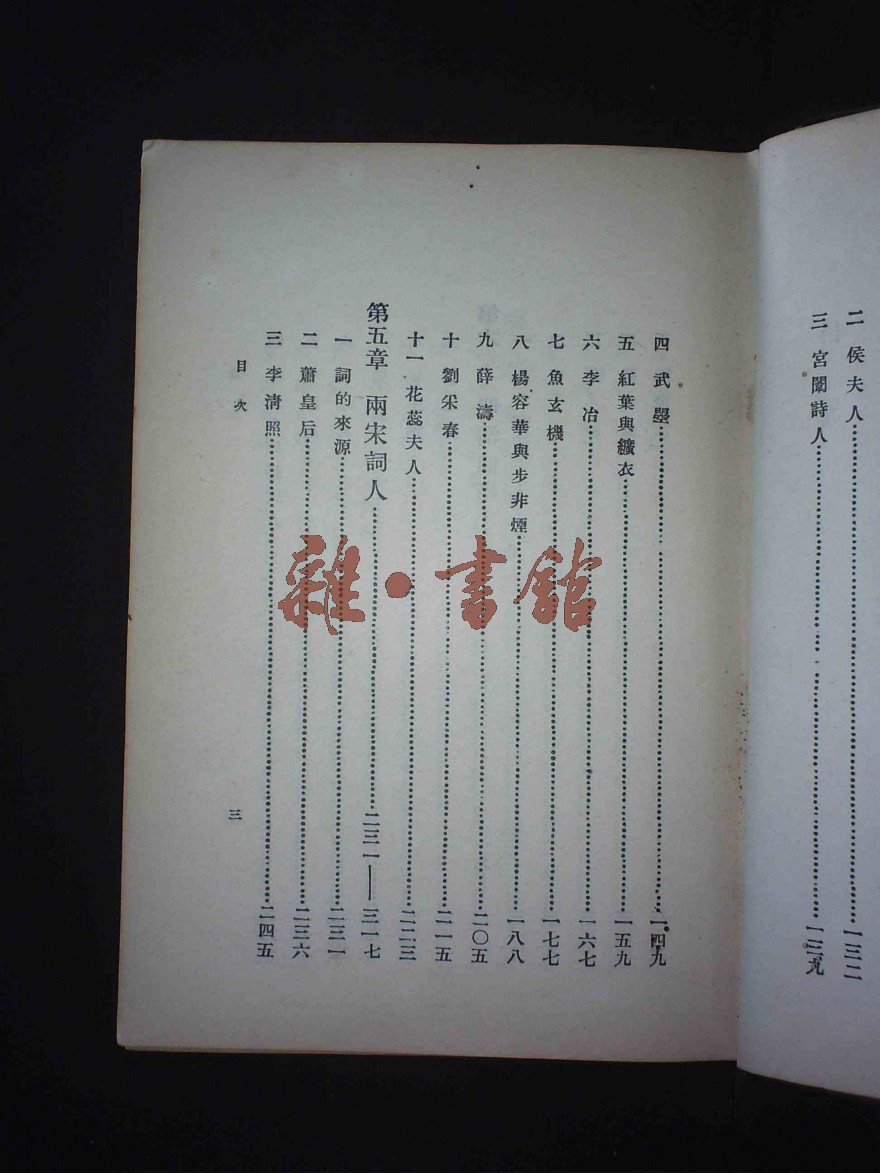 二 侯夫人……一三二
三 宮闈詩人……一三九
四 武曌……一四九
五 紅葉與纊衣……一五九
六 李冶……一六七
七 魚玄機……一七七
八 楊容華與步非煙……一八八
九 薛濤……二〇五
十 劉采春……二一五
十一 花蕊夫人……二二三
第五章 兩宋詞人……二三一——三一七
一 詞的來源……二三一
二 蕭皇后……二三六
三 李清照……二四五
目次
三
雜·書館